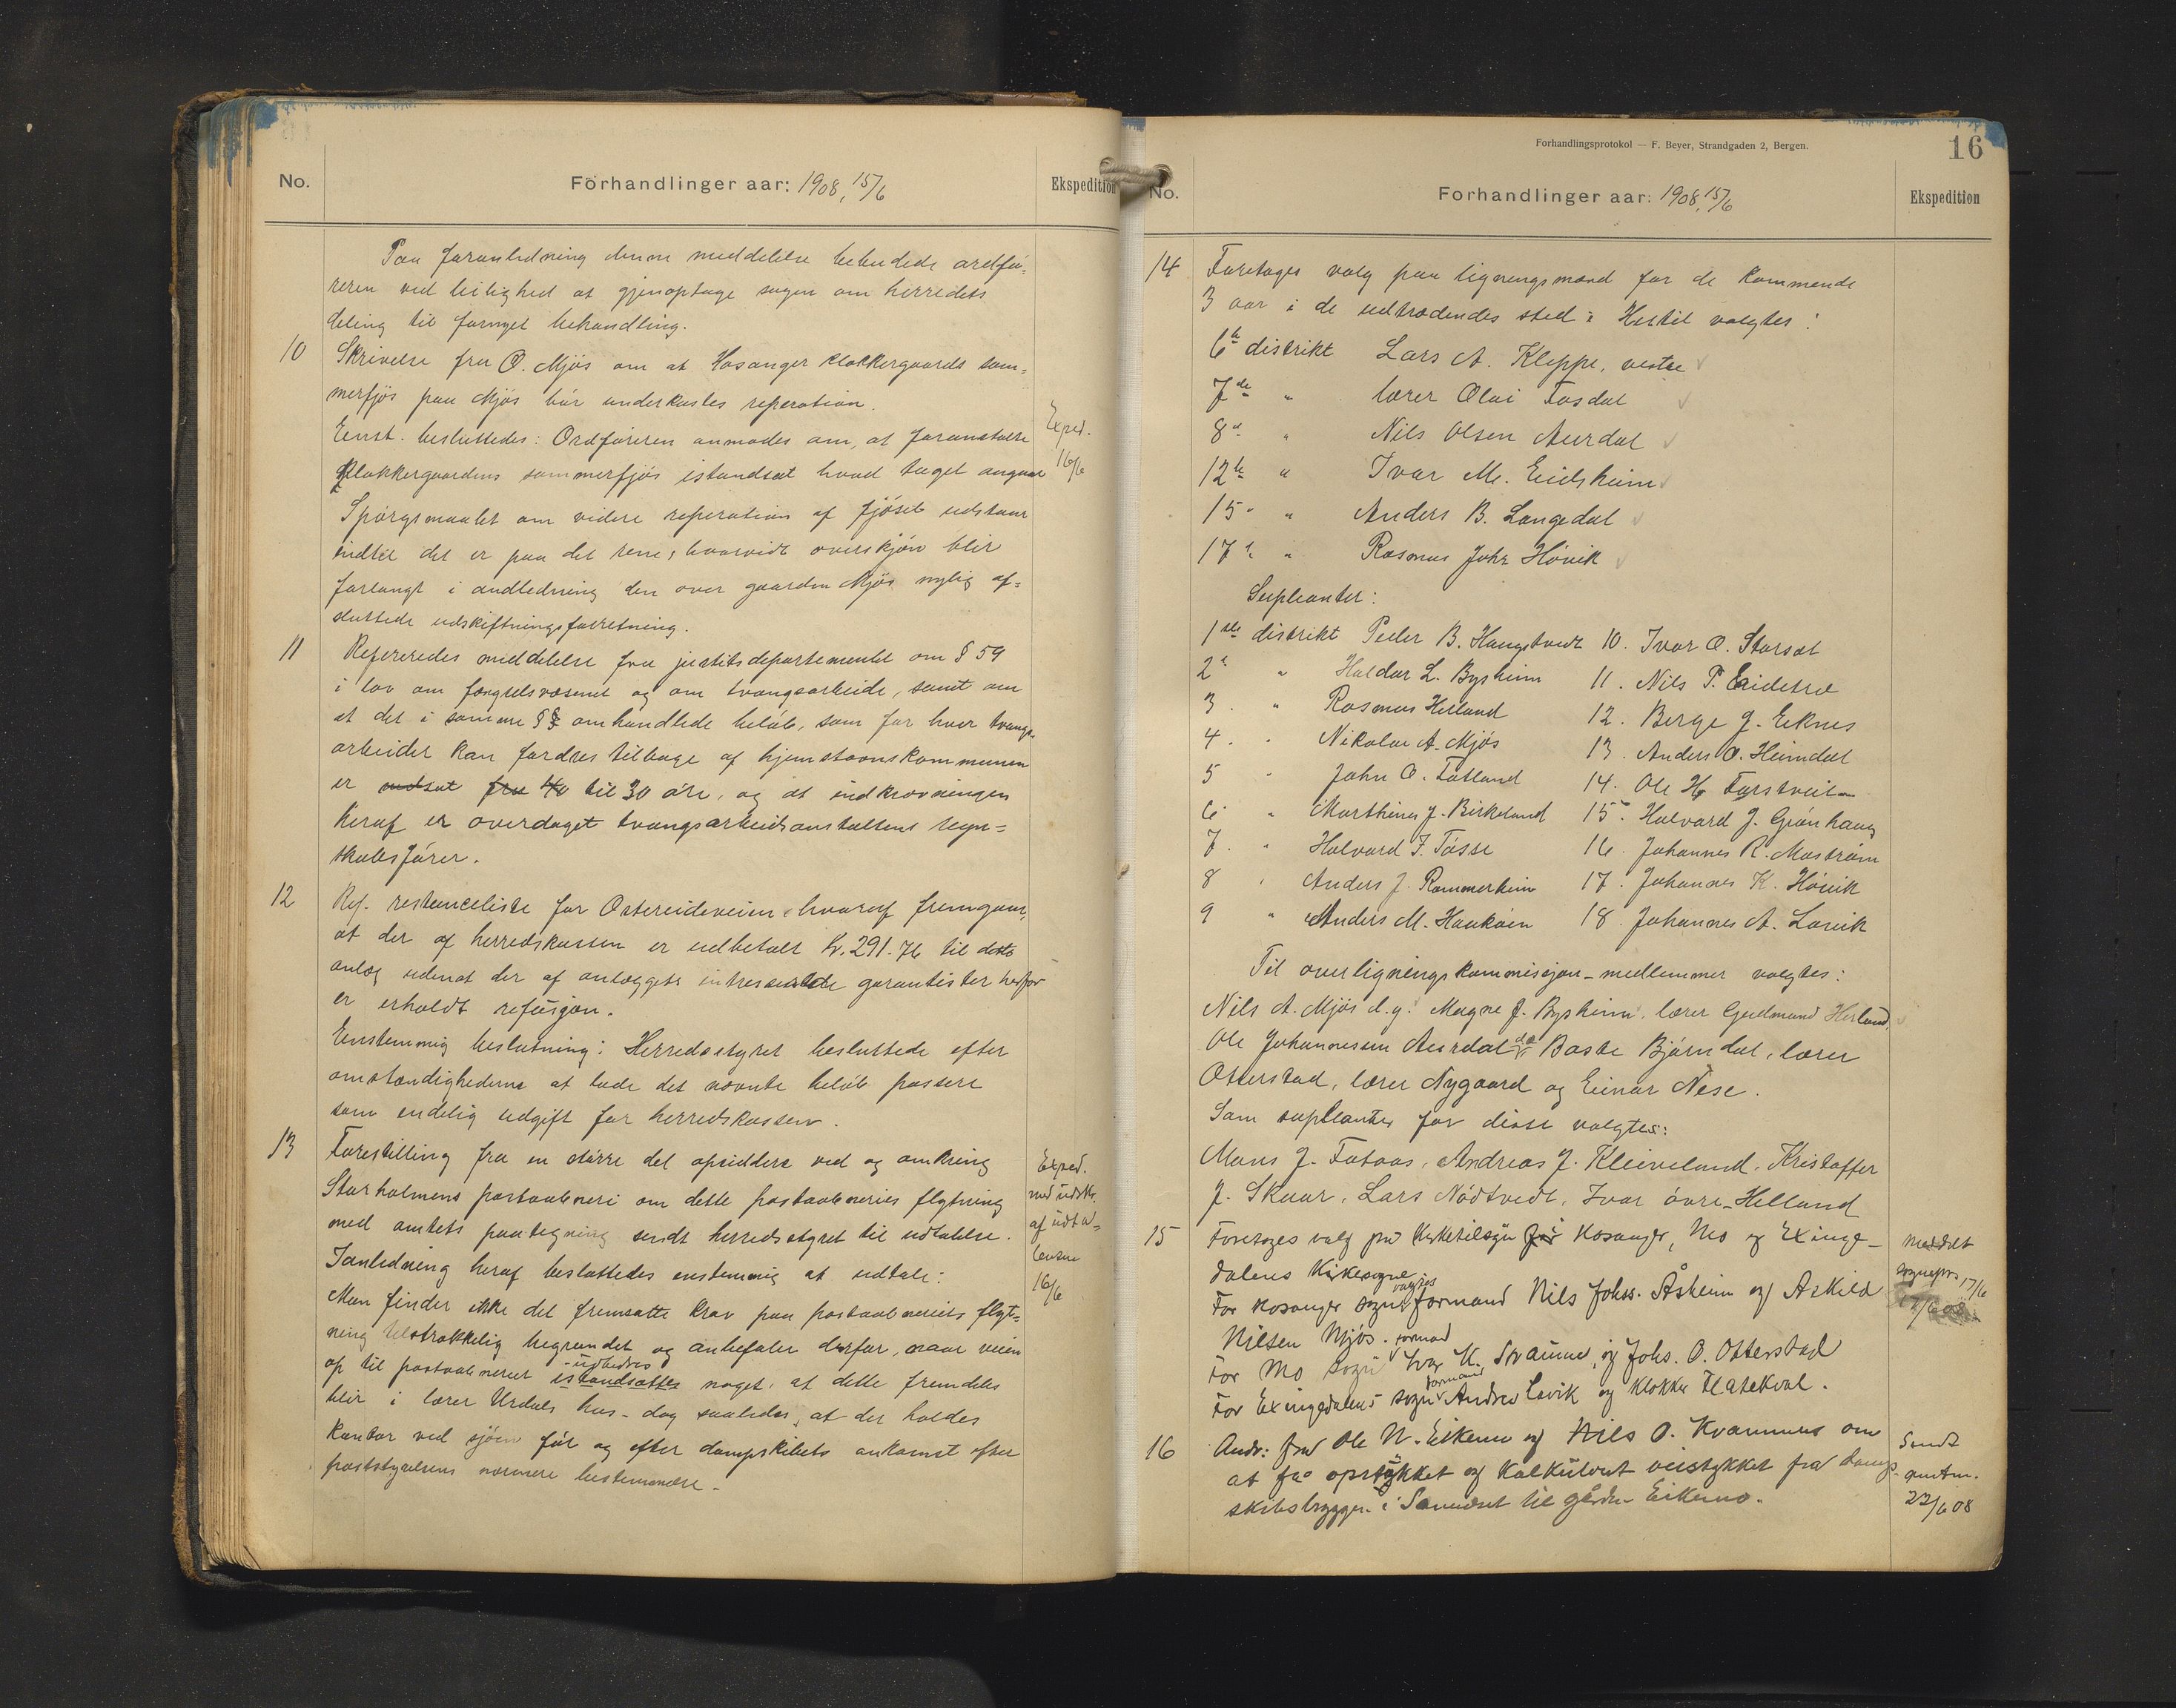 No.
Forhandlinger aar: 1908, 15/6
Ekspedition
Paa foranledning denne meddelelse bebudede ordfö-
reren ved leilighed at gjenoptage sagen om herredets
deling til fornyet behandling.
10 Skrivelse fra O. Mjös om at Hosanger klokkergaards som-
merfjös paa Mjös bör underkastes reperation.
Enst. besluttedes: Ordföreren anmodes om, at foranstalte
Exped.
Klokkergaardens sommerfjös istandsat hvad taget angaar
16/6
Spörgsmaalet om videre reperation af fjöset udstaar
indtil det er paa det rene, hvorvidt overskjön blir
forlangt i andledning den over gaarden Mjös nylig af-
sluttede udskiftningsforretning.
11 Refereredes meddelelse fra justitsdepartementet om § 59
i lov om fængselsvæsenet og om tvangsarbeide, samt om
at det i samme § omhandlede belöb, som for hver tvangs-
arbeider kan fordres tilbage af hjemstavnskommunen
er nedsat fra 40 til 30 öre, og at indkrævningen
heraf er overdraget tvangsarbeidsanstaltens regn-
skabsförer.
12 Ref. restanceliste for Ostereideveien, hvoraf fremgaar,
at der af herredskassen er udbetalt Kr. 291.76 til dette
anlæg udenat der af anlæggets garantister herfor
er erholdt refusjon.
Enstemmig beslutning: Herredsstyret besluttede efter
omstændighederne at lade det nævnte belöb passere
som endelig udgift for herredskassen.
13 Forestilling fra en större del opsiddere ved og omkring
Exped.
Storholmens postaabneri om dette postaabneries flytning
med udskr.
med amtets paategning sendt herredsstyret til udtalelse.
af udta-
Ianledning heraf besluttedes enstemmig at udtale:
lelsen
16/6
Man finder ikke det fremsatte krav paa postaabneriets flyt-
ning tilstrækkelig begrundet og anbefaler derfor, naar veien
op til postaabneriet istandsættes noget, at dette fremdeles
udbedres
blir i lærer Urdals hus - dog saaledes, at der holdes
kontor ved sjöen för og efter dampskibets ankomst efter
poststyrelsens nærmere bestemmelse.
Forhandlingsprotokol — F. Beyer, Strandgaden 2, Bergen.
16
No.
Forhandlinger aar: 1908, 15/6
Ekspedition
14 Foretages valg paa ligningsmænd for de kommende
3 aar i de udtrædendes sted. Hertil valgtes:
6te distrikt Lars A. Kleppe, vestre
7de " lærer Olai Fosdal
8de " Nils Olsen Aurdal
12te " Ivar M. Eidsheim
15. " Anders B. Langedal
17de " Rasmus Johs Hövik
Supleanter:
1ste distrikt Peder B. Haugstvedt 10. Ivar O. Storset
2. " Haldor L. Bysheim 11. Nils P. Eidetræ
3. " Rasmus Herland 12. Berge J. Eknes
4. " Nikolai A. Mjös 13. Anders O. Heimdal
5 " John O. Fotland 14. Ole H. Forstveit
6 " Marthines J. Birkeland 15. Halvard J. Grönhaug
7. " Halvard J. Tösse 16. Johannes R. Moström
8 " Anders J. Rammerheim 17. Johannes K. Hövik
9 " Anders M. Haukåen 18. Johannes A. Lavik
Til overligningskommissjon-medlemmer valgtes:
Nils A. Mjös d.y. Magne J. Bysheim, lærer Gudmund Herland,
Ole Johannessen Aurdal, Baste Björndal, lærer
Otterstad, lærer Nygaard og Einar Nese.
Som supleanter for disse valgtes:
Mons J. Fotaas, Andreas J. Kleiveland, Kristoffer
J. Skaar, Lars Nödtvedt, Ivar övre-Helland
15 Foretoges valg på kirketilsyn for Hosanger, Mo og Exinge-
Meddelt
dalens Kirkesogne
sognepr. 17/6
valgtes
For Hosanger sogn formand Nils Johss. Åsheim og Askild
17/6 08
Nilsen Mjös.
formand
For Mo sogn Ivar K. Straume, og Johs. O. Otterstad
formand
For Exingedalens sogn Andres Lavik og klokker Flatekval.
16 Andr: fra Ole N. Eikemo og Nils O. Kvammen om
Sendt
at få opstykket og kalkulert veistykket fra damp-
amtm.
skibsbryggen i Sannæset til gården Eikemo.
22/6 08